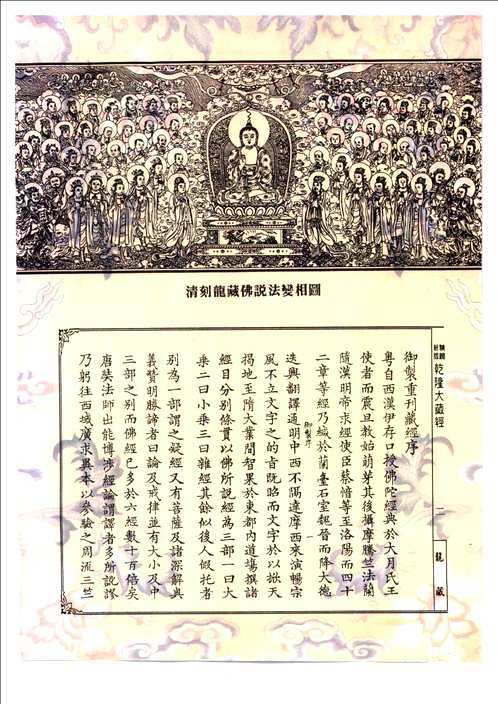 清刻龍藏佛説法變相圖
乾隆大藏經
二
龍藏
御製重刊藏經序
粤自西漢伊存口授佛陀經典於大月氏王
使者而震旦教始萌芽其後攝摩騰竺法蘭
隨漢明帝求經使臣蔡愔等至洛陽而四十
二章等經乃緘於蘭臺石室魏晉而降大德
迭興翻譯通明中西不隔達摩西來演暢宗
御製序
一
風不立文字之字的旨既昭而文字於以掀天
揭地至隋大業間智果於東都内道場撰諸
經目分别條貫以佛所説經為三部一曰大
乗二曰小乗三曰雜經其餘似後人假托者
别為一部謂之疑經又有菩薩及諸深解奥
義贊明勝諦者曰論及戒律並有大小及中
三部之别而佛經已多於六經數十百倍矣
唐奘法師出能博涉經論謂譯者多所説謬
乃躬往西域廣求異本以參驗之周流三竺